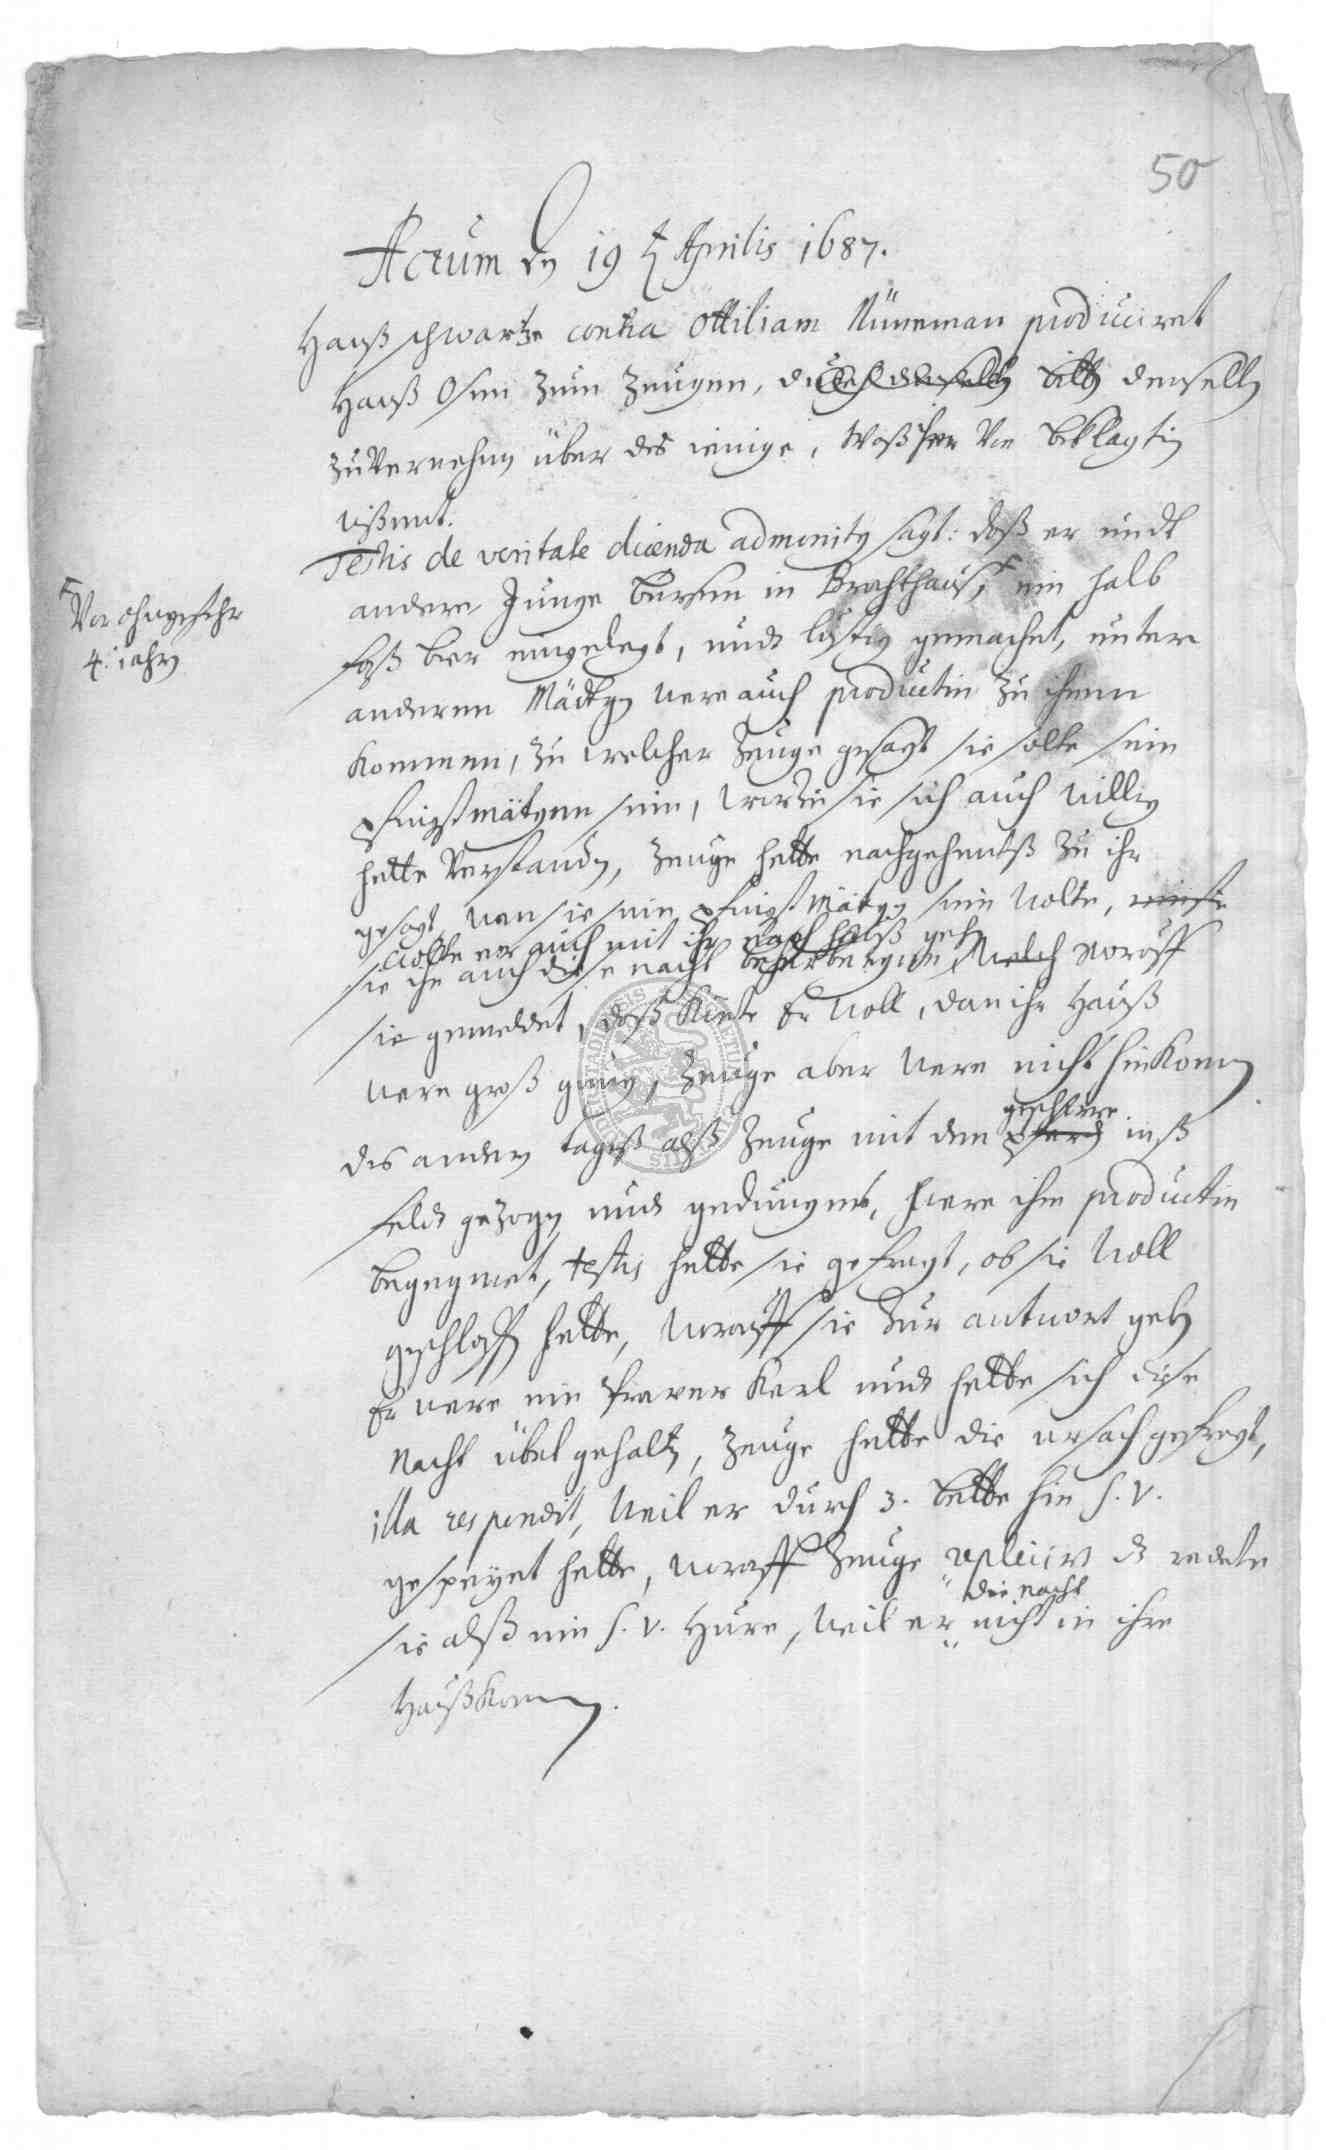 50
Actum den 19 t Aprilis 1687.
Hanß schwartze contra Ottiliam Nüneman produciret
Hanß Osen zum Zeugen, bitt denselb
zu Vernehmen über das ienige, waß von beklagtin
wißent.
Testis de veritate dicenda admonitus sagt: daß er undt
andere Junge bursen in Brachthauß, ein halb
Vor ohngefehr
4. iahren
faß bier eingelegt, undt lustig gemachet, unter
anderen Mädtgen were auch productin zu ihnen
kommen, zu welcher Zeuge gesagt sie solte sein
Pfingstmätgen sein, worzu sie sich auch willig
hette Verstanden, Zeuge hette nachgehentß zu ihr
gesagt, wan sie sein Pfingstmätgen sein wolte,
wolte er auch mit ihr nach hauß gehen
sie ihn auch diese nacht beherbergen, Welch worauff
sie gemeldet, daß künte Er woll, dan ihr Hauß
were groß gnug, Zeuge aber were nicht hinkomen
des andern tageß alß Zeuge mit dem
geschirre
pferd inß
feldt gezogen undt gedünget, were ihm productin
begegnet, testis hette sie gefragt, ob sie woll
geschlaffen hette, worauff sie zur antwort geben
Er were ein braver Kerl undt hette sich diese
Nacht übel gehalten, Zeuge hette die ursach gefragt,
illa respondit, weil er durch 3. bette hin s. v.
gespeyet hette, worauff Zeuge replicirt es redete
sie alß ein s. v. Hure, weil er
die nacht
nicht in ihre
Hauß komen.